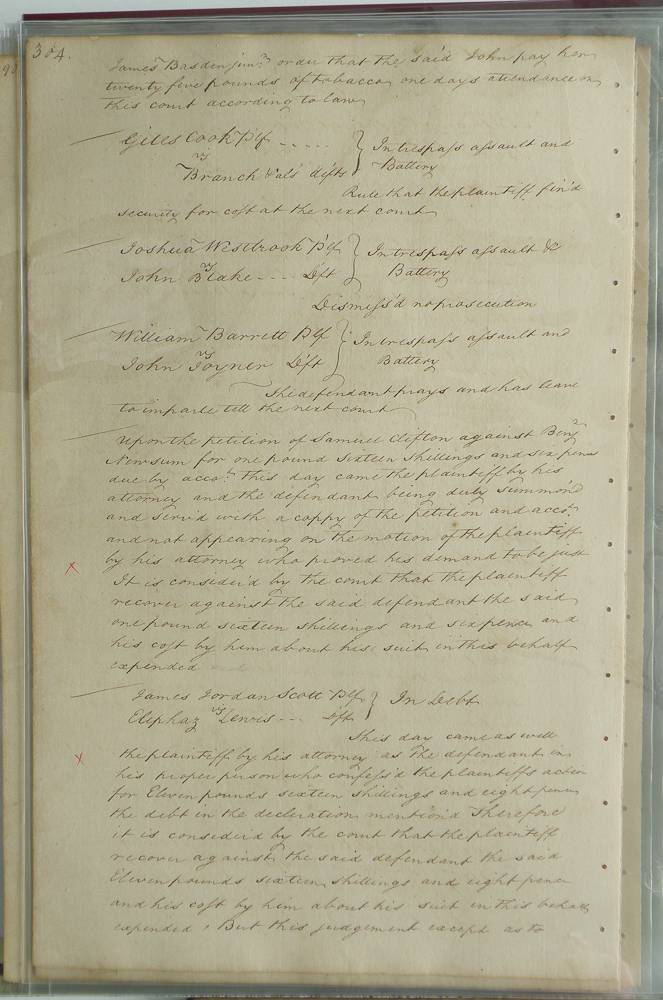 304.
James Basden junr. order that the said John pay her
twenty five pounds of tobacco, one days attendance on
this court according to law
Giles Cook Plf - - - - - } In trespass assault and
vs
Branch &als Defts Battery
Rule that the plaintiff find
security for cost at the next court
Joshua Westbrook Plf } In trespass assault &c
vs
John Blake - - - Dft Battery
Dismiss'd no prosecution
William Barrett Plf } In trespass assault and
vs
John Joyner Dft Battery
The defendant prays and has leave
to imparle till the next court
Upon the petition of Samuel Clifton against Benja
Newsum for one pound sixteen shillings and six pence
due by acco.t this day came the plaintiff by his
attorney and the defendant being duly summon'd
and serv'd with a coppy of the petition and acco.t
and not appearing on the motion of the plaintiff
by his attorney who proved his demand to be just
x It is consider'd by the court that the plaintiff
recover against the said defendant the said
one pound sixteen shillings and sixpence and
his cost by him about his suit in this behalf
expended
James Jordan Scott Plf } In Debt
vs
Eliphaz Lewis - - - Dft
This day came as well
x the plaintiff by his attorney as the defendant in
his proper person who confess'd the plaintiffs action
for Eleven pounds sixteen shillings and eight pence
the debt in the decleration mention'd Therefore
it is consider'd by the court that the plaintiff
recover against the said defendant the said
Eleven pounds sixteen shillings and eight pence
and his cost by him about his suit in this behalf
expended, But this judgement except as to